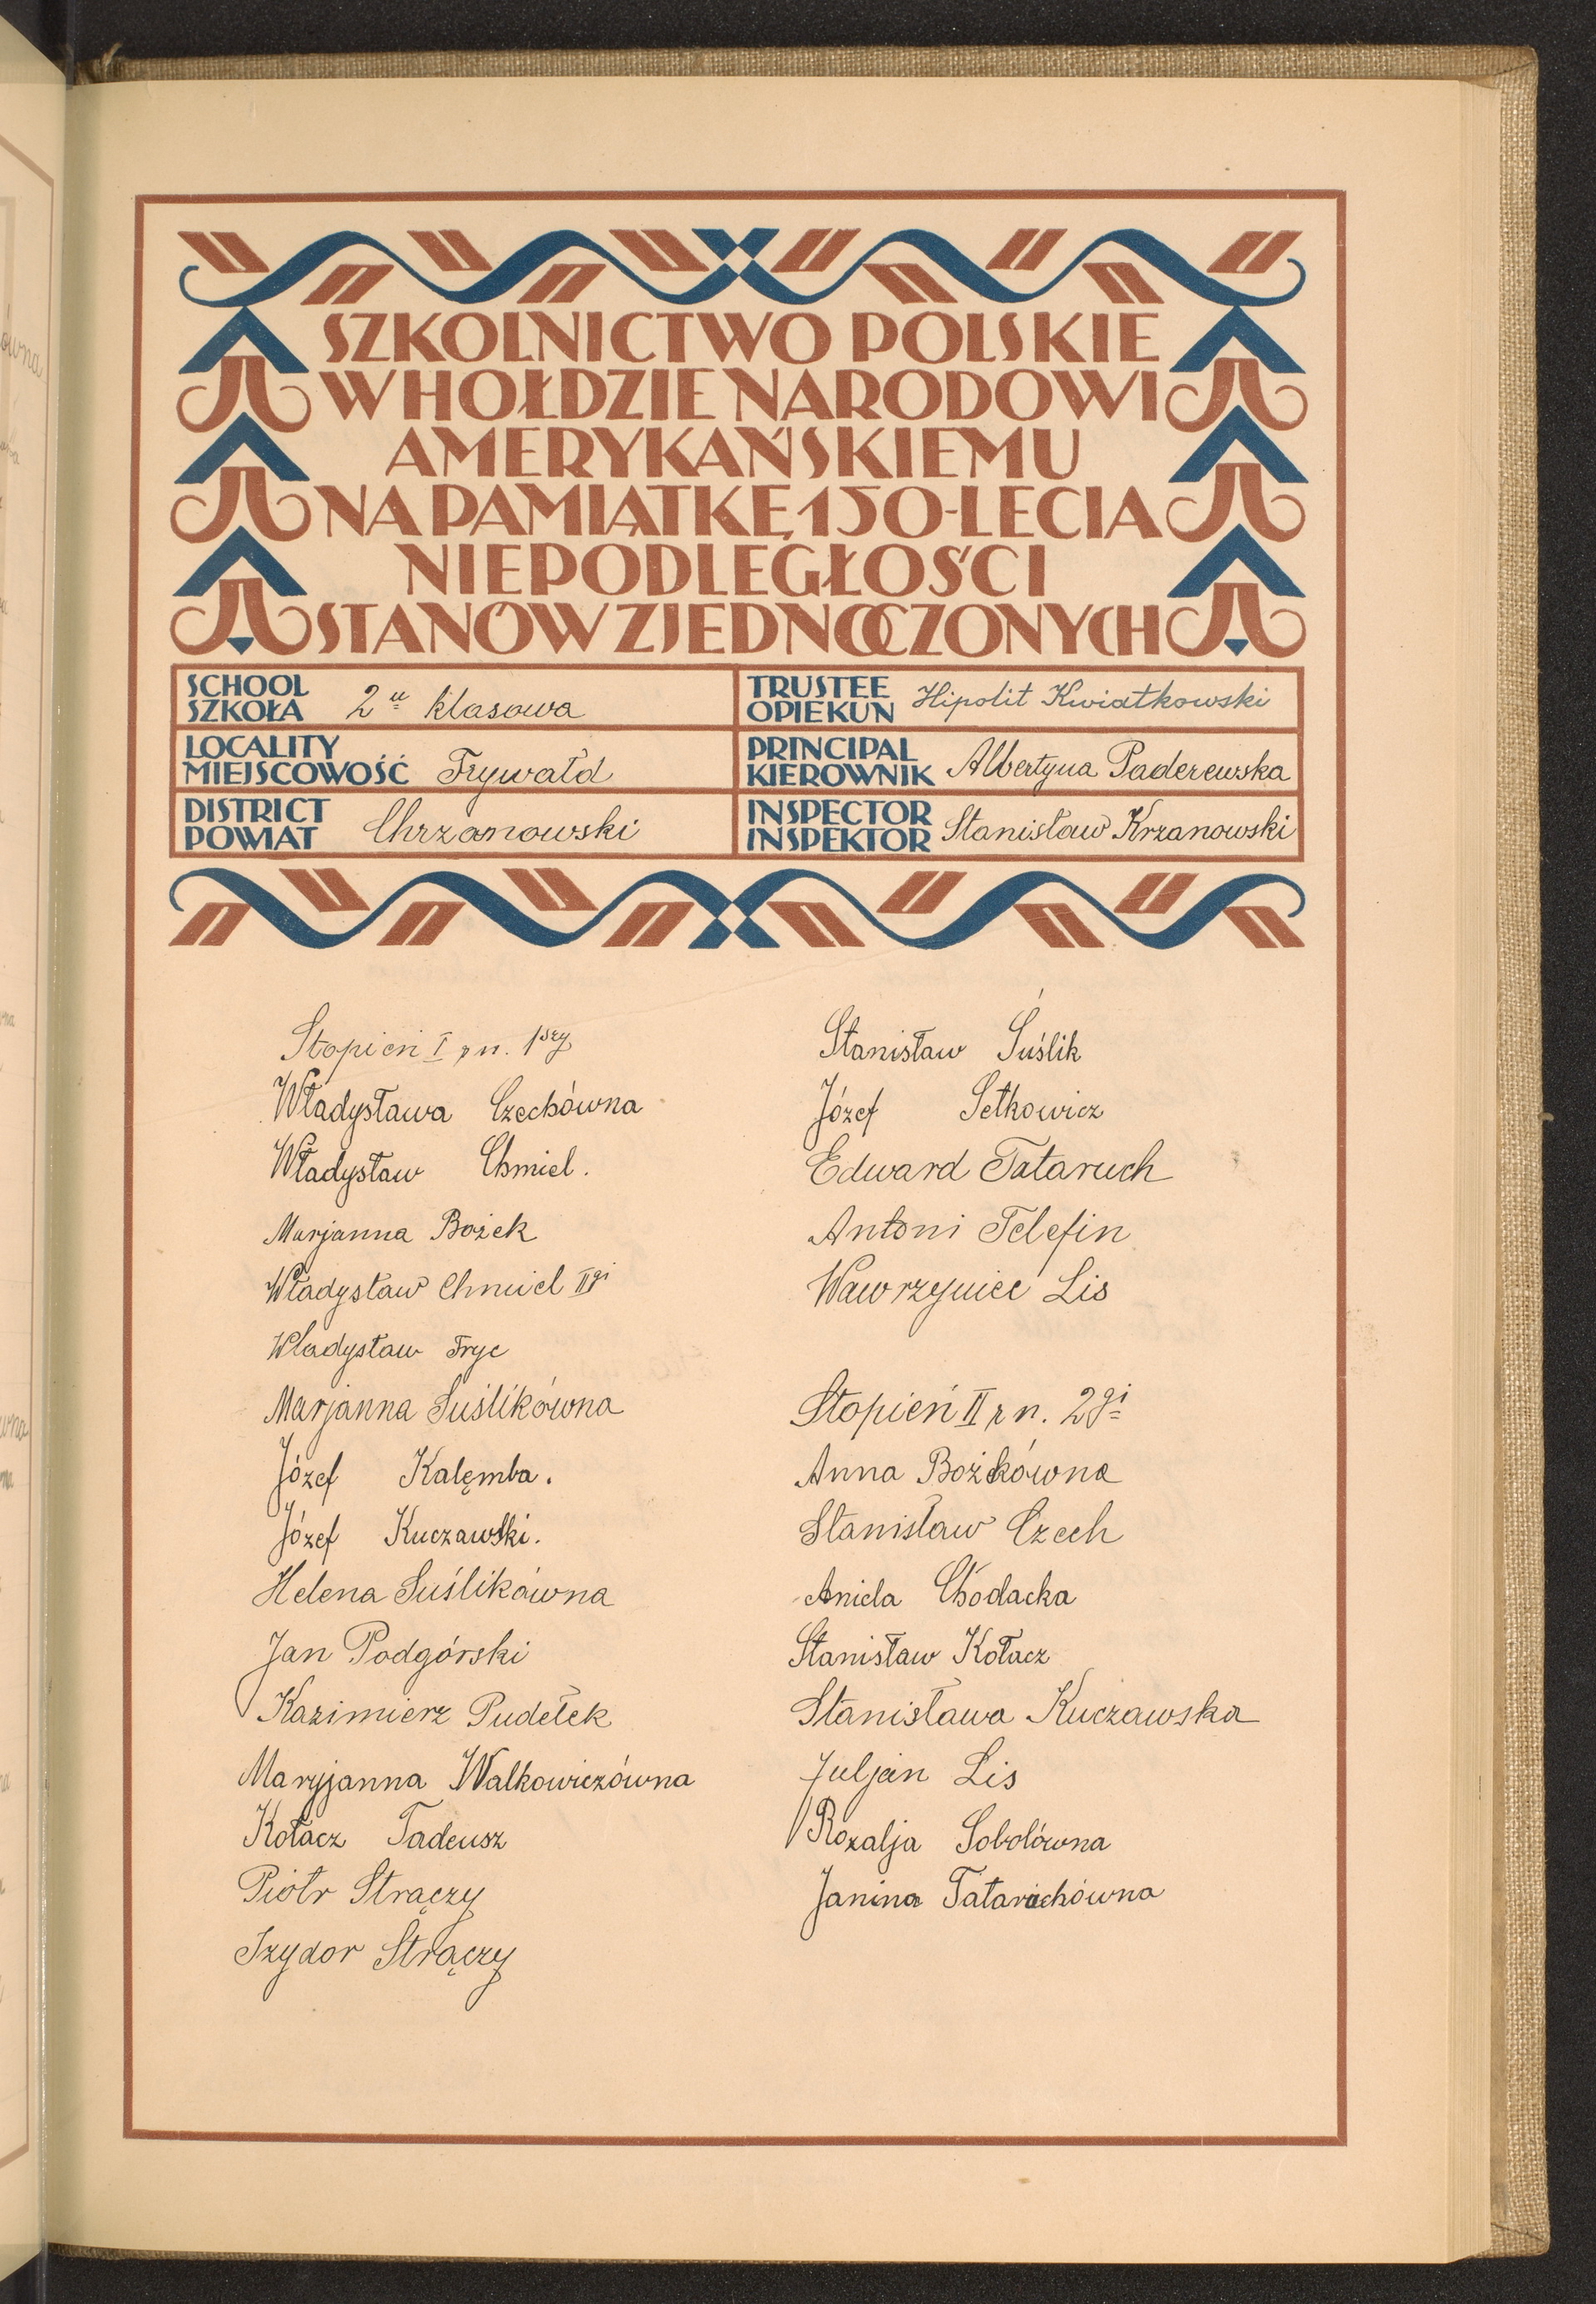 SZKOLNICTWO POLSKIE
W HOŁDZIE NARODOWI
AMERYKAŃSKIEMU
NA PAMIĄTKĘ 150-LECIA
NIEPODLEGŁOŚCI
STANÓW ZJEDNOCZONYCH
SCHOOL
SZKOŁA 2u klasowa
TRUSTEE
OPIEKUN Hipolit Kwiatkowski
LOCALITY
MIEJSCOWOŚĆ Frywałd
PRINCIPAL
KIEROWNIK Albertyna Paderewska
DISTRICT
POWIAT Chrzanowski
INSPECTOR
INSPEKTOR Stanisław Krzanowski
Stopień I r n. 1szy
Władysława Czechówna
Władysław Chmiel.
Marjanna Bożek
Władysław Chmiel IIgi
Władysław Fryc
Marjanna Suślikówna
Józef Kalęmba.
Józef Kuczawski.
Helena Suślikówna
Jan Podgórski
Kazimierz Pudełek
Maryjanna Walkowiczówna
Kołacz Tadeusz
Piotr Strączy
Izydor Strączy
Stanisław Suślik
Józef Setkowicz
Edward Tataruch
Antoni Telefin
Wawrzyniec Lis
Stopień II r n. 2gi
Anna Bożkówna
Stanisław Czech
Aniela Chodacka
Stanisław Kołacz
Stanisława Kuczawska
Juljan Lis
Rozalja Sobolówna
Janina Tataruchówna